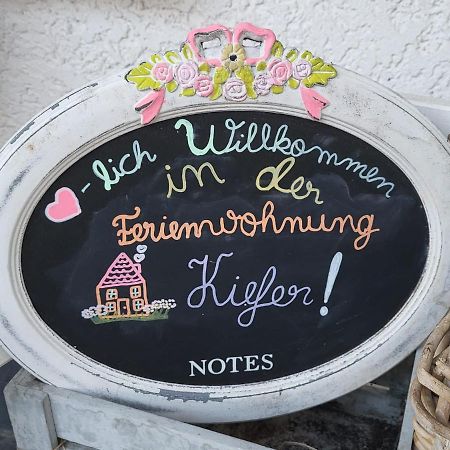 -lich Willkommen
in der
Ferienwohnung
Kiefer!
NOTES